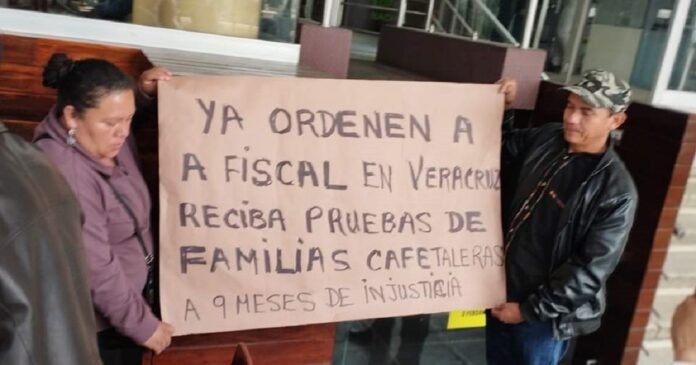 YA ORDENEN A
A FISCAL EN VERACRUZ
RECIBA PRUEBAS DE
FAMILIAS CAFETALERAS
A 9 MESES DE INJUSTICIA